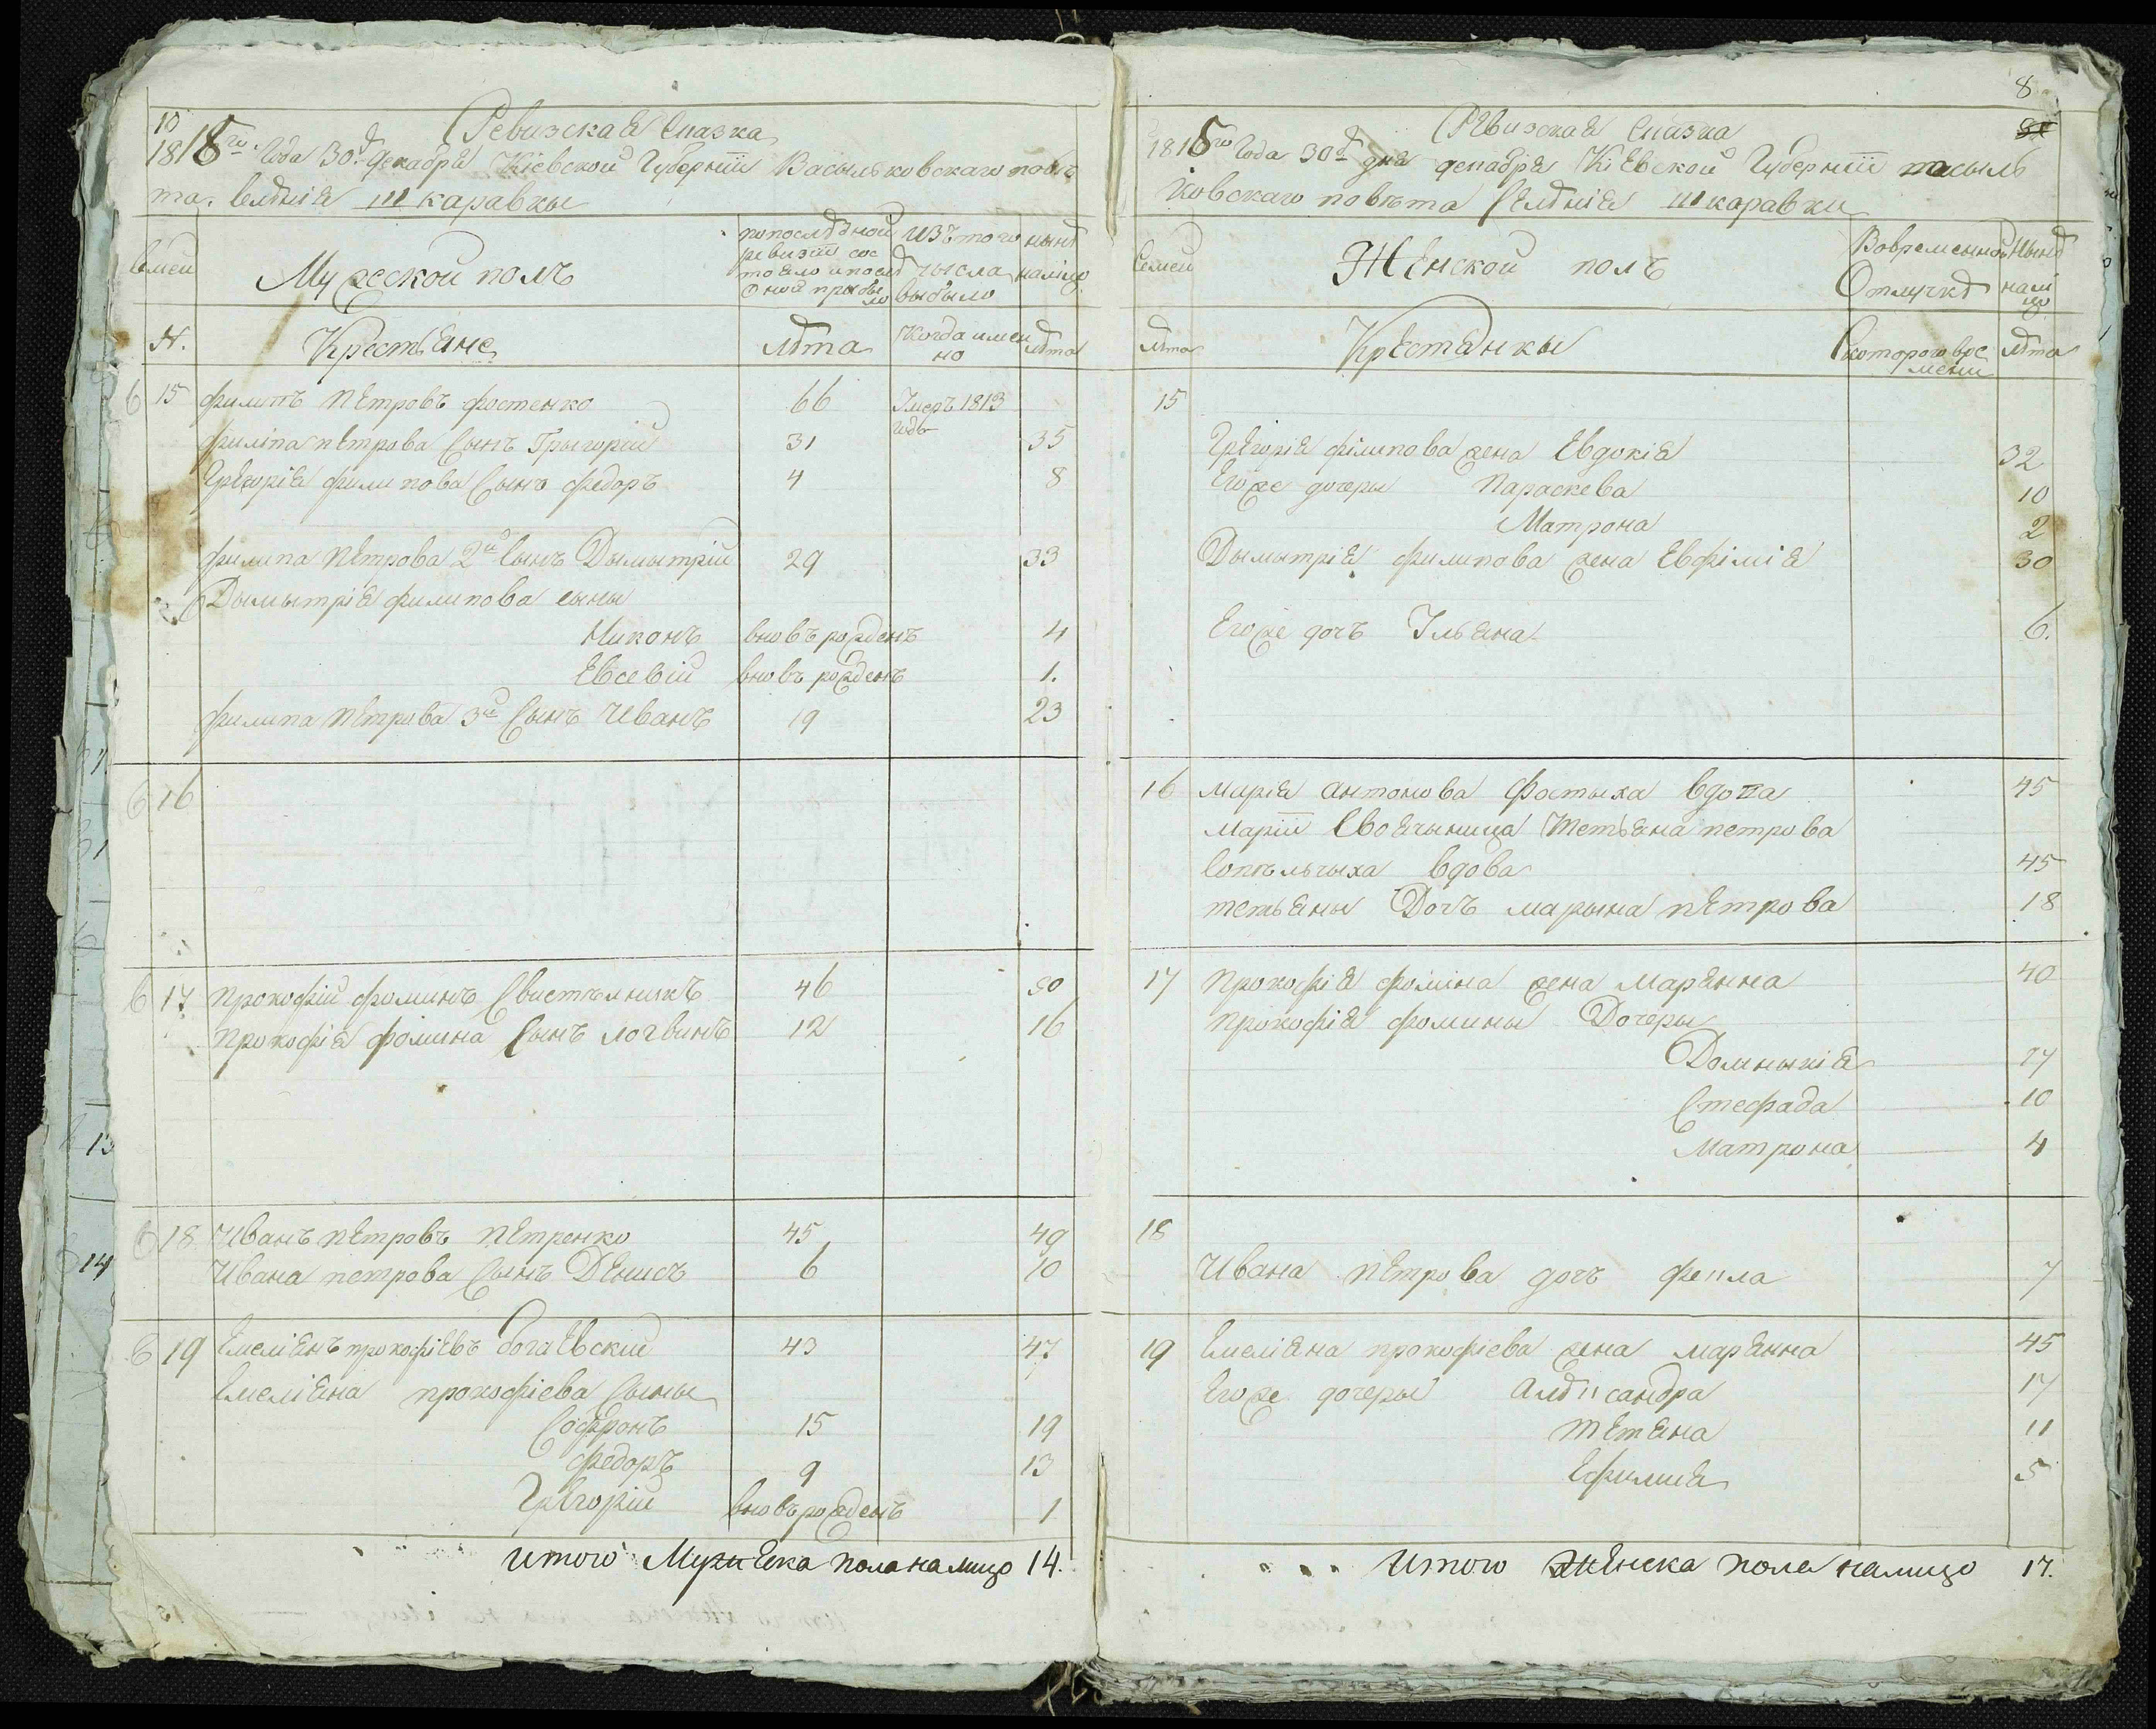 10
Ревизская Сказка
1815го Года 30д Декабря Кіевской Губерніи Васыльковскаго повѣ
та. Селенія Шкаравкы
Семеи
Мужеской полъ
по последной ревизіи сос
тояло и после
оной прибы
ло
изъ того
чысла
выбыло
нынѣ
налицо
N.
Крестьяне
Лѣта
Когда имен
но
Лѣта
6 15 Филипъ Петровъ Фостенко 66 Умеръ 1813
годъ
Филіпа Петрова Сынъ Грыгорій 31 35
Грегорія Филипова Сынъ Федоръ 4 8
Филипа Петрова 2й Сынъ Дымытрій 29 33
Дымытрія Филипова сыны
Никонъ вновъ рожденъ 4
Евсевій вновъ рожденъ 1.
Филипа Петрова 3й Сынъ Иванъ 19 23
6 16
6 17 Прокофій Фоминъ Свистѣлникъ 46 50
Прокофія Фомина Сынъ Логвинъ 12 16
6 18 Иванъ Петровъ Петренко 45 49
Ивана Петрова Сынъ Денисъ 6 10
6 19 Емеліянъ Прокофіевъ Богаевскій 43 47
Емеліяна Прокофіева Сыны
Софронъ 15 19
Федоръ 9 13
Грегорій вновъ рожденъ 1
Итого Мужеска пола налицо 14.
8
Ревизская Сказка
1815го Года 30д дня декабря Кіевской Губерніи Васыль
ковскаго повѣта Селенія Шкаравки
Семеи
Женской полъ
Во временной
Отлучкѣ
Нынѣ
налі
цо
Лѣта
Крестянкы
С котораго вре
мени
Лѣта
15
Грегорія Філипова жена Евдокія 32
Егоже дочеры Параскева 10
Матрона 2
Дымытрія Филипова жена Евфімія 30
Егоже дочъ Ульяна 6.
16 Марія Антонова Фостыха вдова 45
Маріи Своячыница Тетьяна Петрова
Сопѣльныха вдова 45
Тетьяны Дочъ Марына Петрова 18
17 Прокофія Фоміна жена Марянна 40
Прокофія Фомины Дочеры
Домныкія 17
Стефада 10
Матрона 4
18
Ивана Петрова дочъ Фекла 7
19 Емеліяна Прокофіева жена Марянна 45
Егоже дочеры Алѣксандра 17
Тетяна 11
Ефимія 5
Итого Женска пола налицо 17.